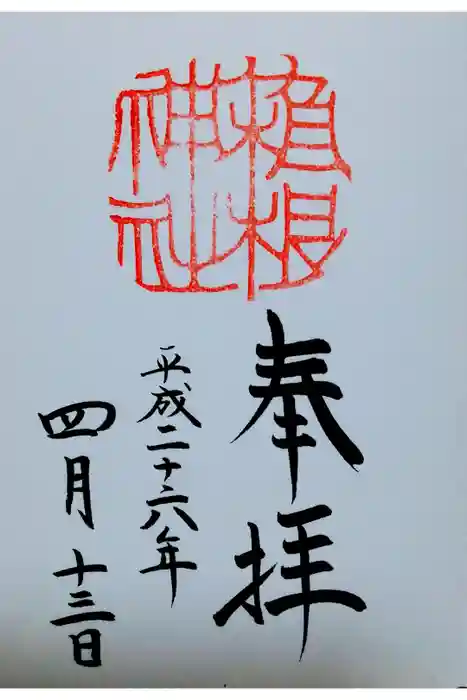 奉拝
根
神社
平成二十六年
四月十三日